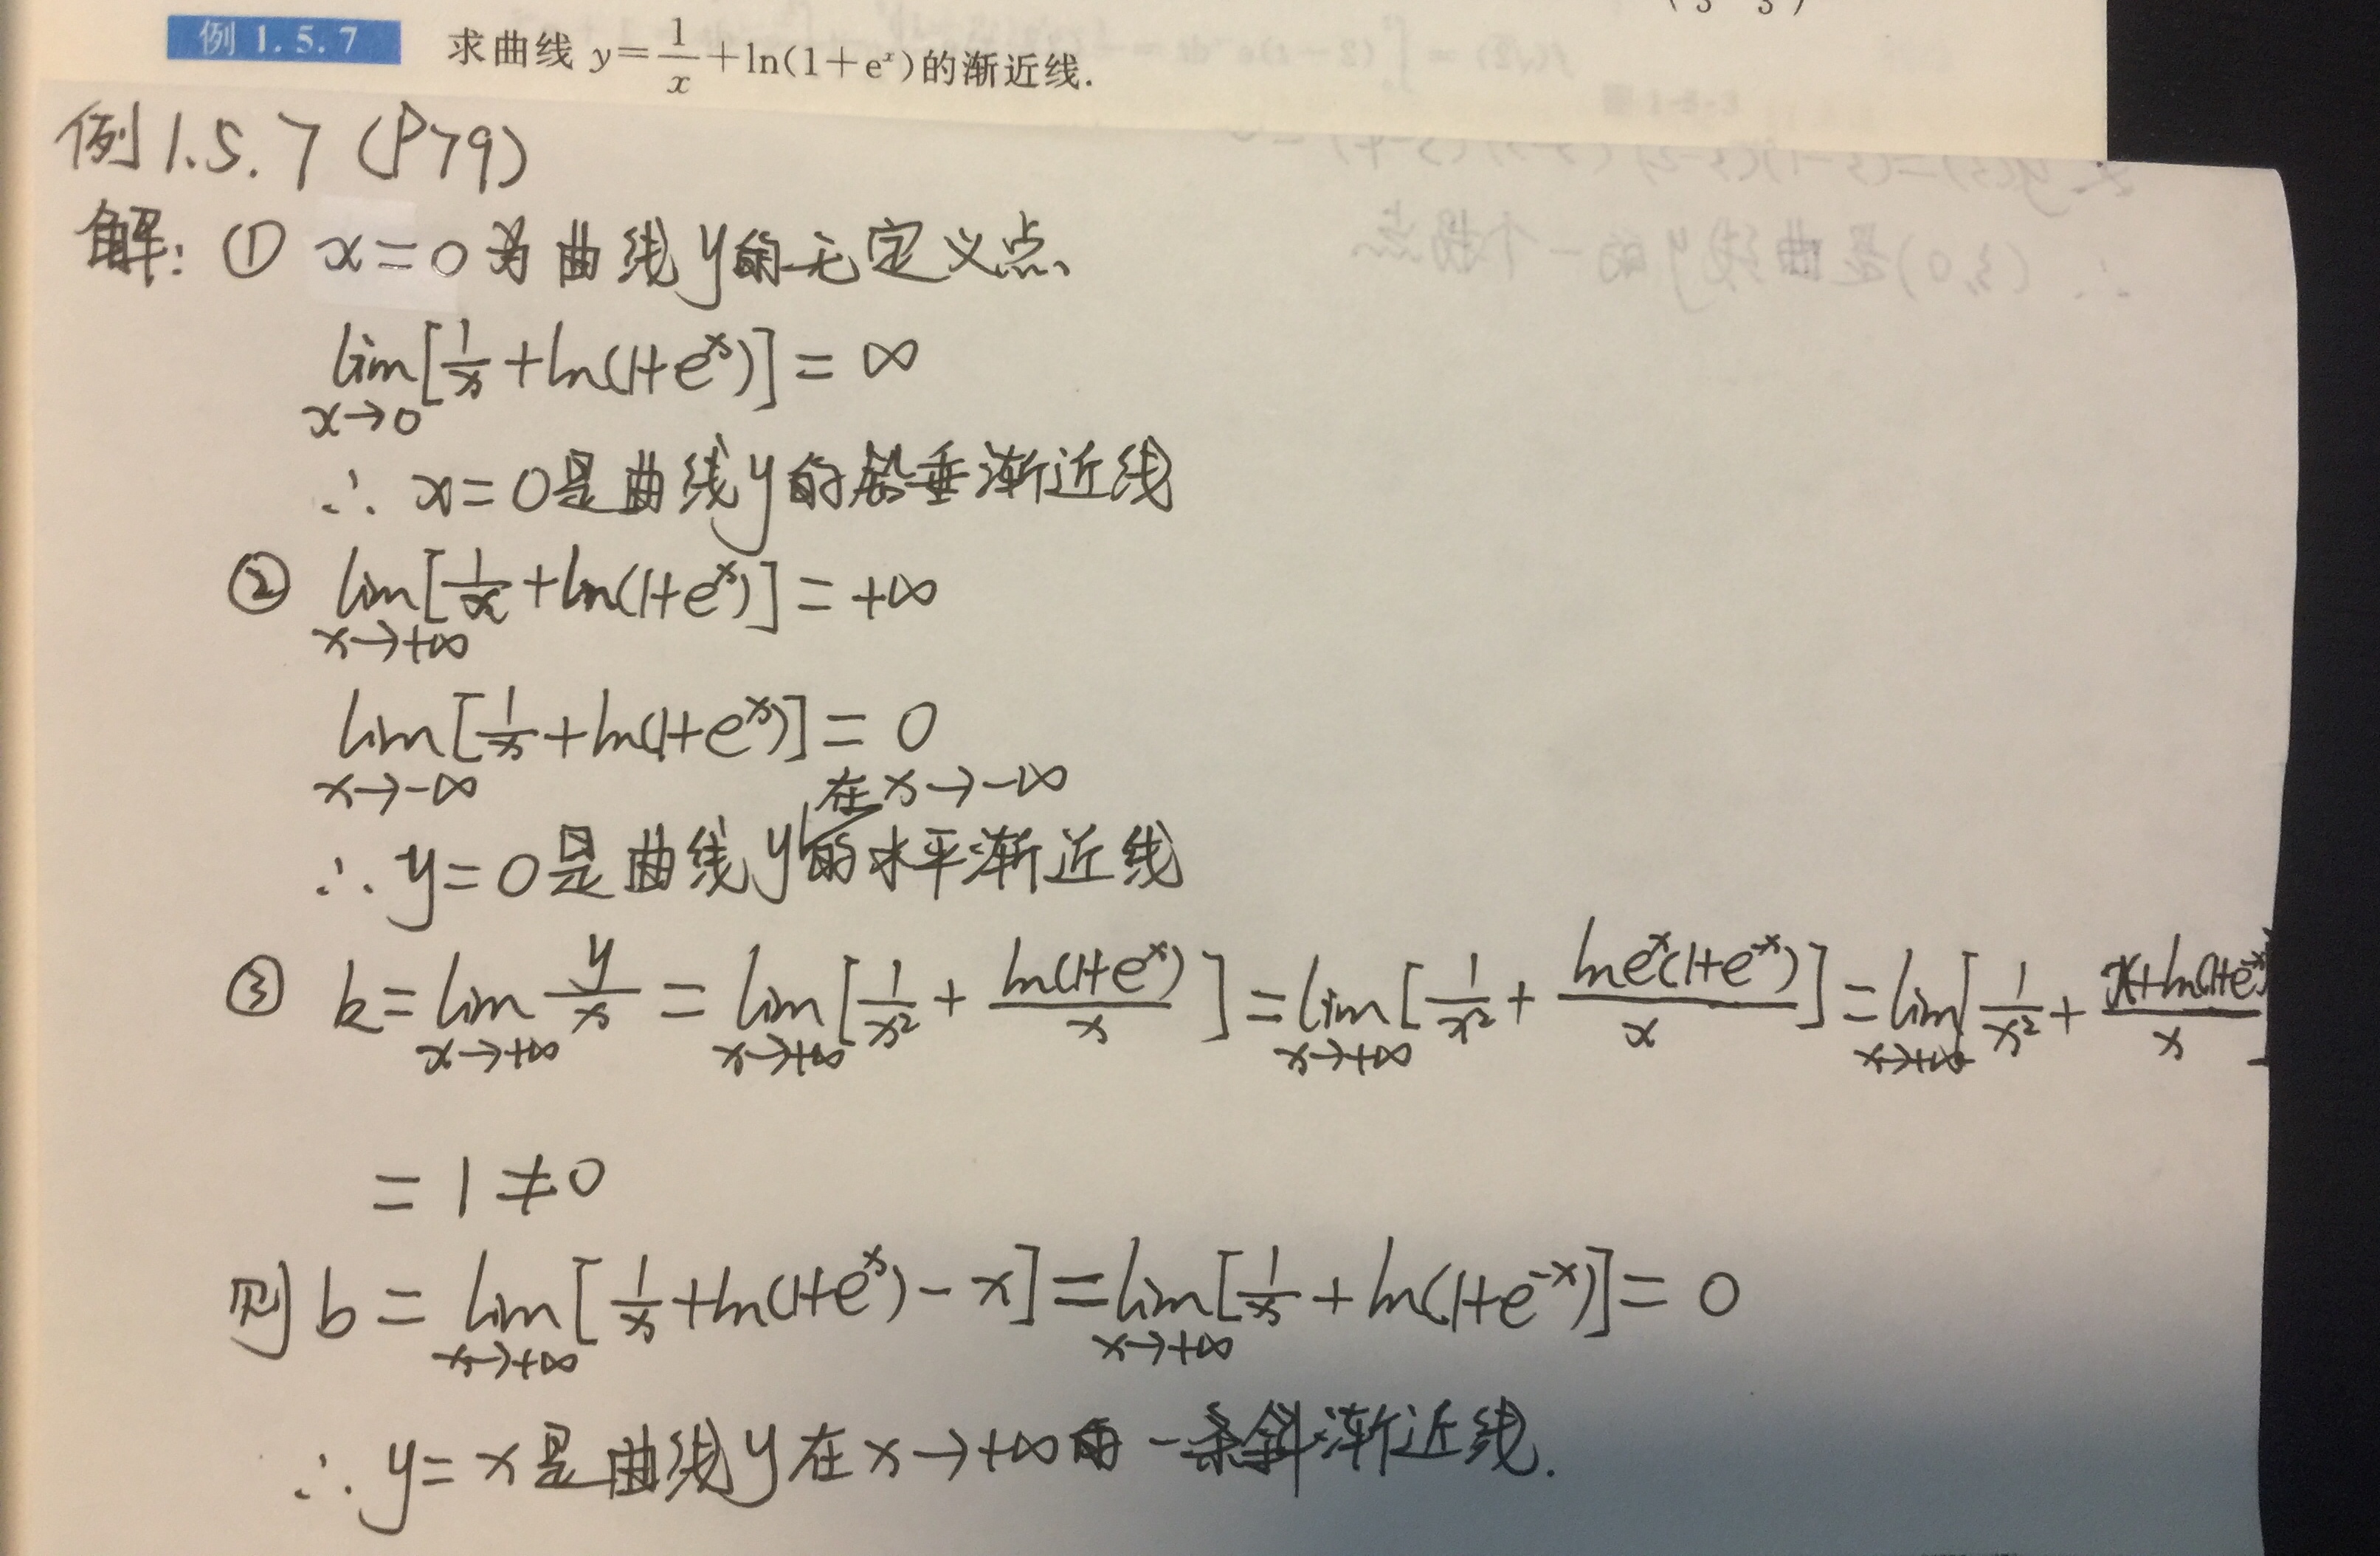 例 1.5.7 求曲线 y=1/x+ln(1+eˣ)的渐近线.
例1.5.7 (P79)
解: ① x=0为曲线y的无定义点
lim[1/x+ln(1+eˣ)]=∞
x→0
∴ x=0是曲线y的铅垂渐近线
② lim[1/x+ln(1+eˣ)]=+∞
x→+∞
lim[1/x+ln(1+eˣ)]=0
x→-∞
在x→-∞
∴ y=0是曲线y的水平渐近线
③ k=lim y/x = lim[1/x²+ ln(1+eˣ)/x]=lim[1/x²+ lneˣ(1+e⁻ˣ)/x]=lim[1/x²+ x+ln(1+e⁻ˣ)/x]
x→+∞ x→+∞ x→+∞ x→+∞
=1≠0
则 b=lim[1/x+ln(1+eˣ)-x]=lim[1/x+ln(1+e⁻ˣ)]=0
x→+∞ x→+∞
∴ y=x是曲线y在x→+∞的一条斜渐近线.